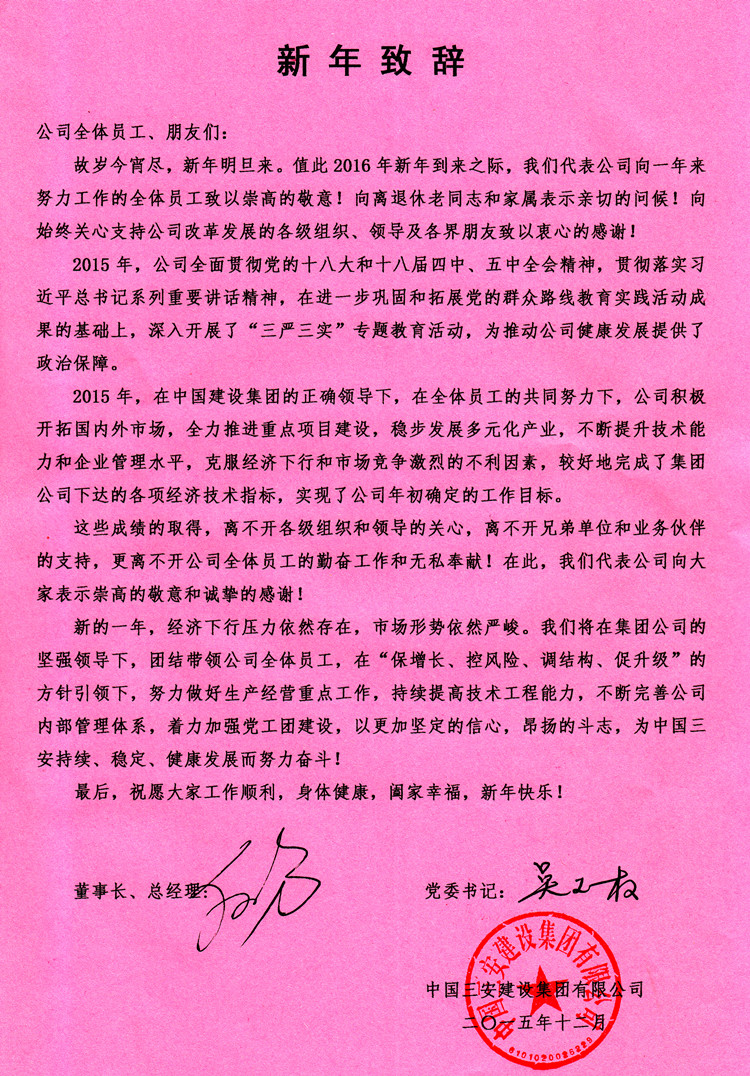 新年致辞
公司全体员工、朋友们：
故岁今宵尽，新年明旦来。值此2016年新年到来之际，我们代表公司向一年来
努力工作的全体员工致以崇高的敬意！向离退休老同志和家属表示亲切的问候！向
始终关心支持公司改革发展的各级组织、领导及各界朋友致以衷心的感谢！
2015年，公司全面贯彻党的十八大和十八届四中、五中全会精神，贯彻落实习
近平总书记系列重要讲话精神，在进一步巩固和拓展党的群众路线教育实践活动成
果的基础上，深入开展了“三严三实”专题教育活动，为推动公司健康发展提供了
政治保障。
2015年，在中国建设集团的正确领导下，在全体员工的共同努力下，公司积极
开拓国内外市场，全力推进重点项目建设，稳步发展多元化产业，不断提升技术能
力和企业管理水平，克服经济下行和市场竞争激烈的不利因素，较好地完成了集团
公司下达的各项经济技术指标，实现了公司年初确定的工作目标。
这些成绩的取得，离不开各级组织和领导的关心，离不开兄弟单位和业务伙伴
的支持，更离不开公司全体员工的勤奋工作和无私奉献！在此，我们代表公司向大
家表示崇高的敬意和诚挚的感谢！
新的一年，经济下行压力依然存在，市场形势依然严峻。我们将在集团公司的
坚强领导下，团结带领公司全体员工，在“保增长、控风险、调结构、促升级”的
方针引领下，努力做好生产经营重点工作，持续提高技术工程能力，不断完善公司
内部管理体系，着力加强党工团建设，以更加坚定的信心，昂扬的斗志，为中国三
安持续、稳定、健康发展而努力奋斗！
最后，祝愿大家工作顺利，身体健康，阖家幸福，新年快乐！
董事长、总经理：
党委书记：
中国三安建设集团有限公司
中国三安建设集团有限公司
二〇一五年十二月
6101020026229